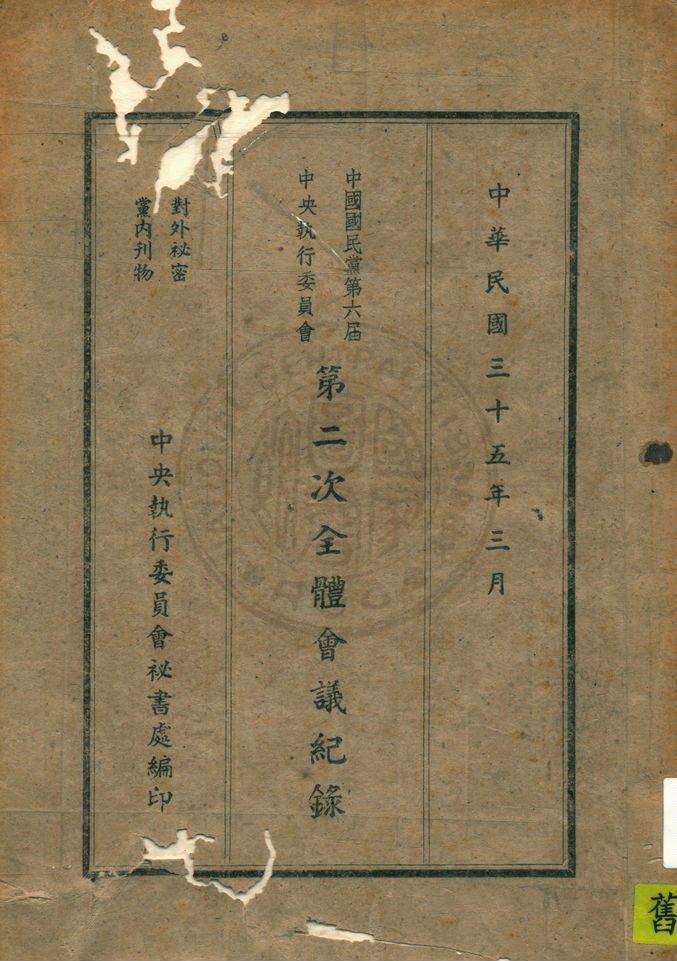 中華民國三十五年三月
中國國民黨第六屆
中央執行委員會
第二次全體會議紀錄
對外祕密
黨內刊物
中央執行委員會祕書處編印
舊